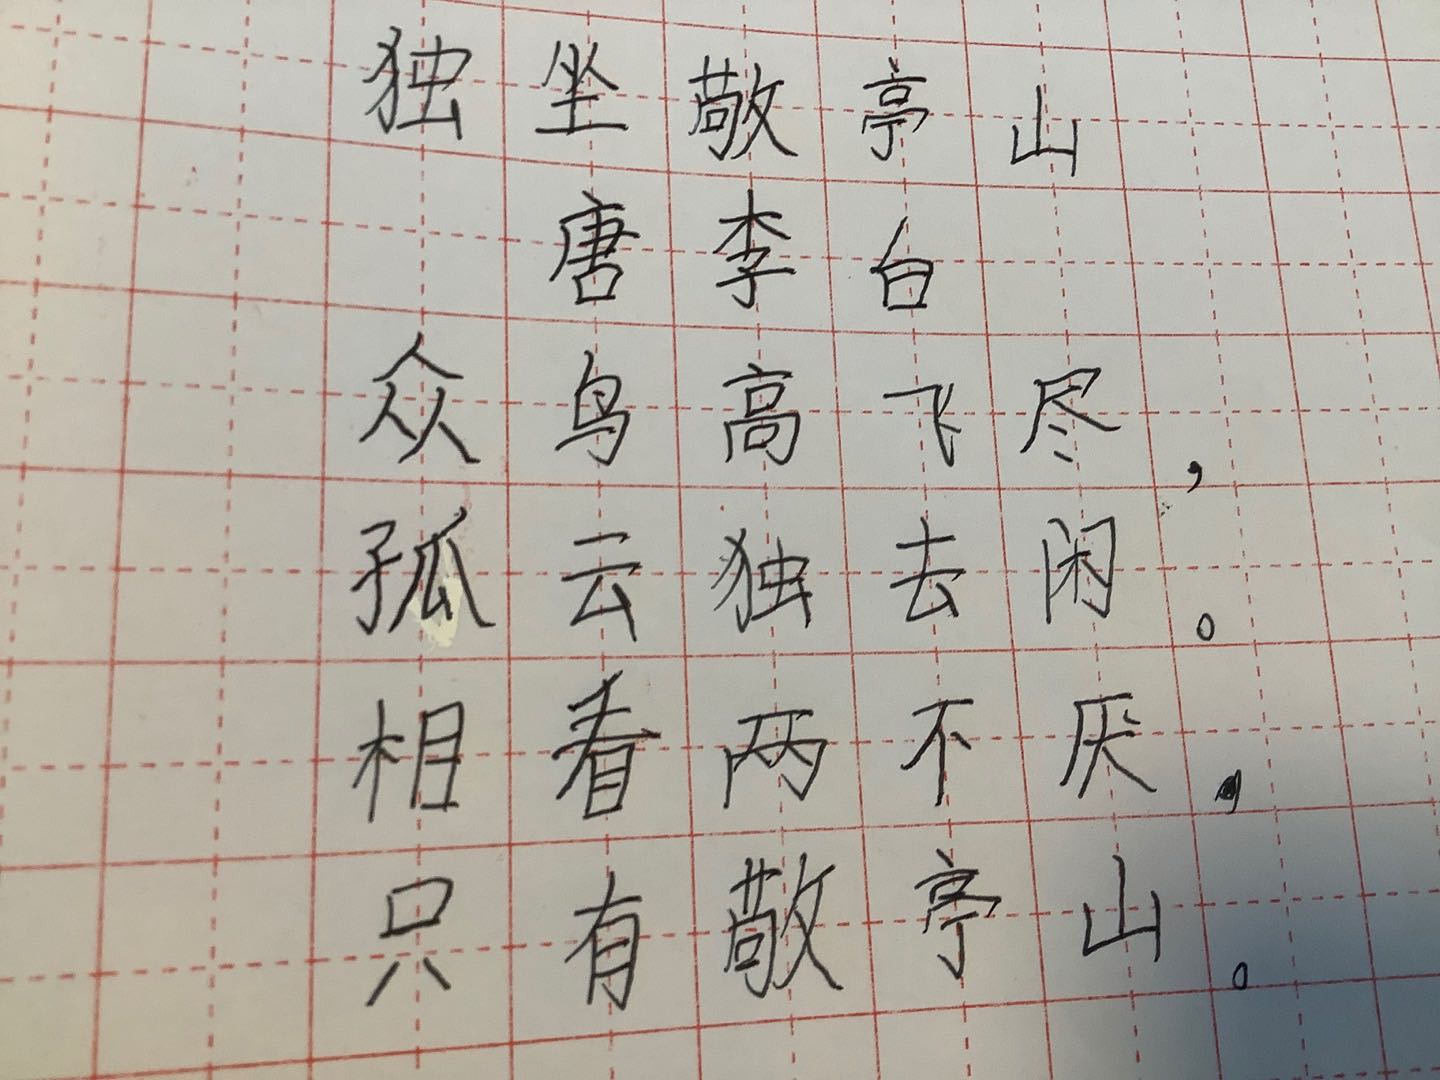 独坐敬亭山
唐李白
众鸟高飞尽，
孤云独去闲。
相看两不厌，
只有敬亭山。